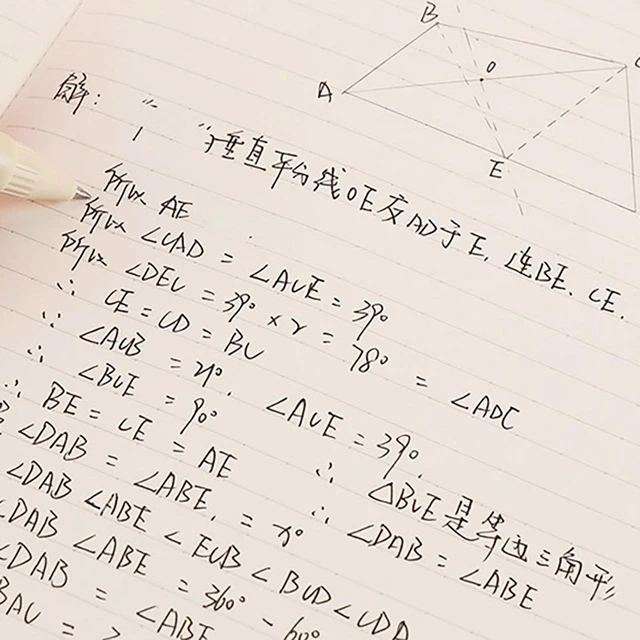 B
O
A
E
解：
垂直平分线OE交AD于E,连BE、CE.
所以 AE
所以 ∠CAD = ∠ACE = 39°
所以 ∠DEC = 39° × 2 = 78° = ∠ADC
∴ CE = CD = BC
∴ ∠ACB = 21°, ∠ACE = 39°,
∴ ∠BCE = 90° ∴ △BCE是等边三角形
∴ BE = CE = AE ∴ ∠DAB = ∠ABE
∠DAB = ∠ABE, = x°
∠DAB ∠ABE < ECB < BCD < CDA
∠DAB ∠ABE = 360° - 60°
∠DAB = ∠ABE
BAC =